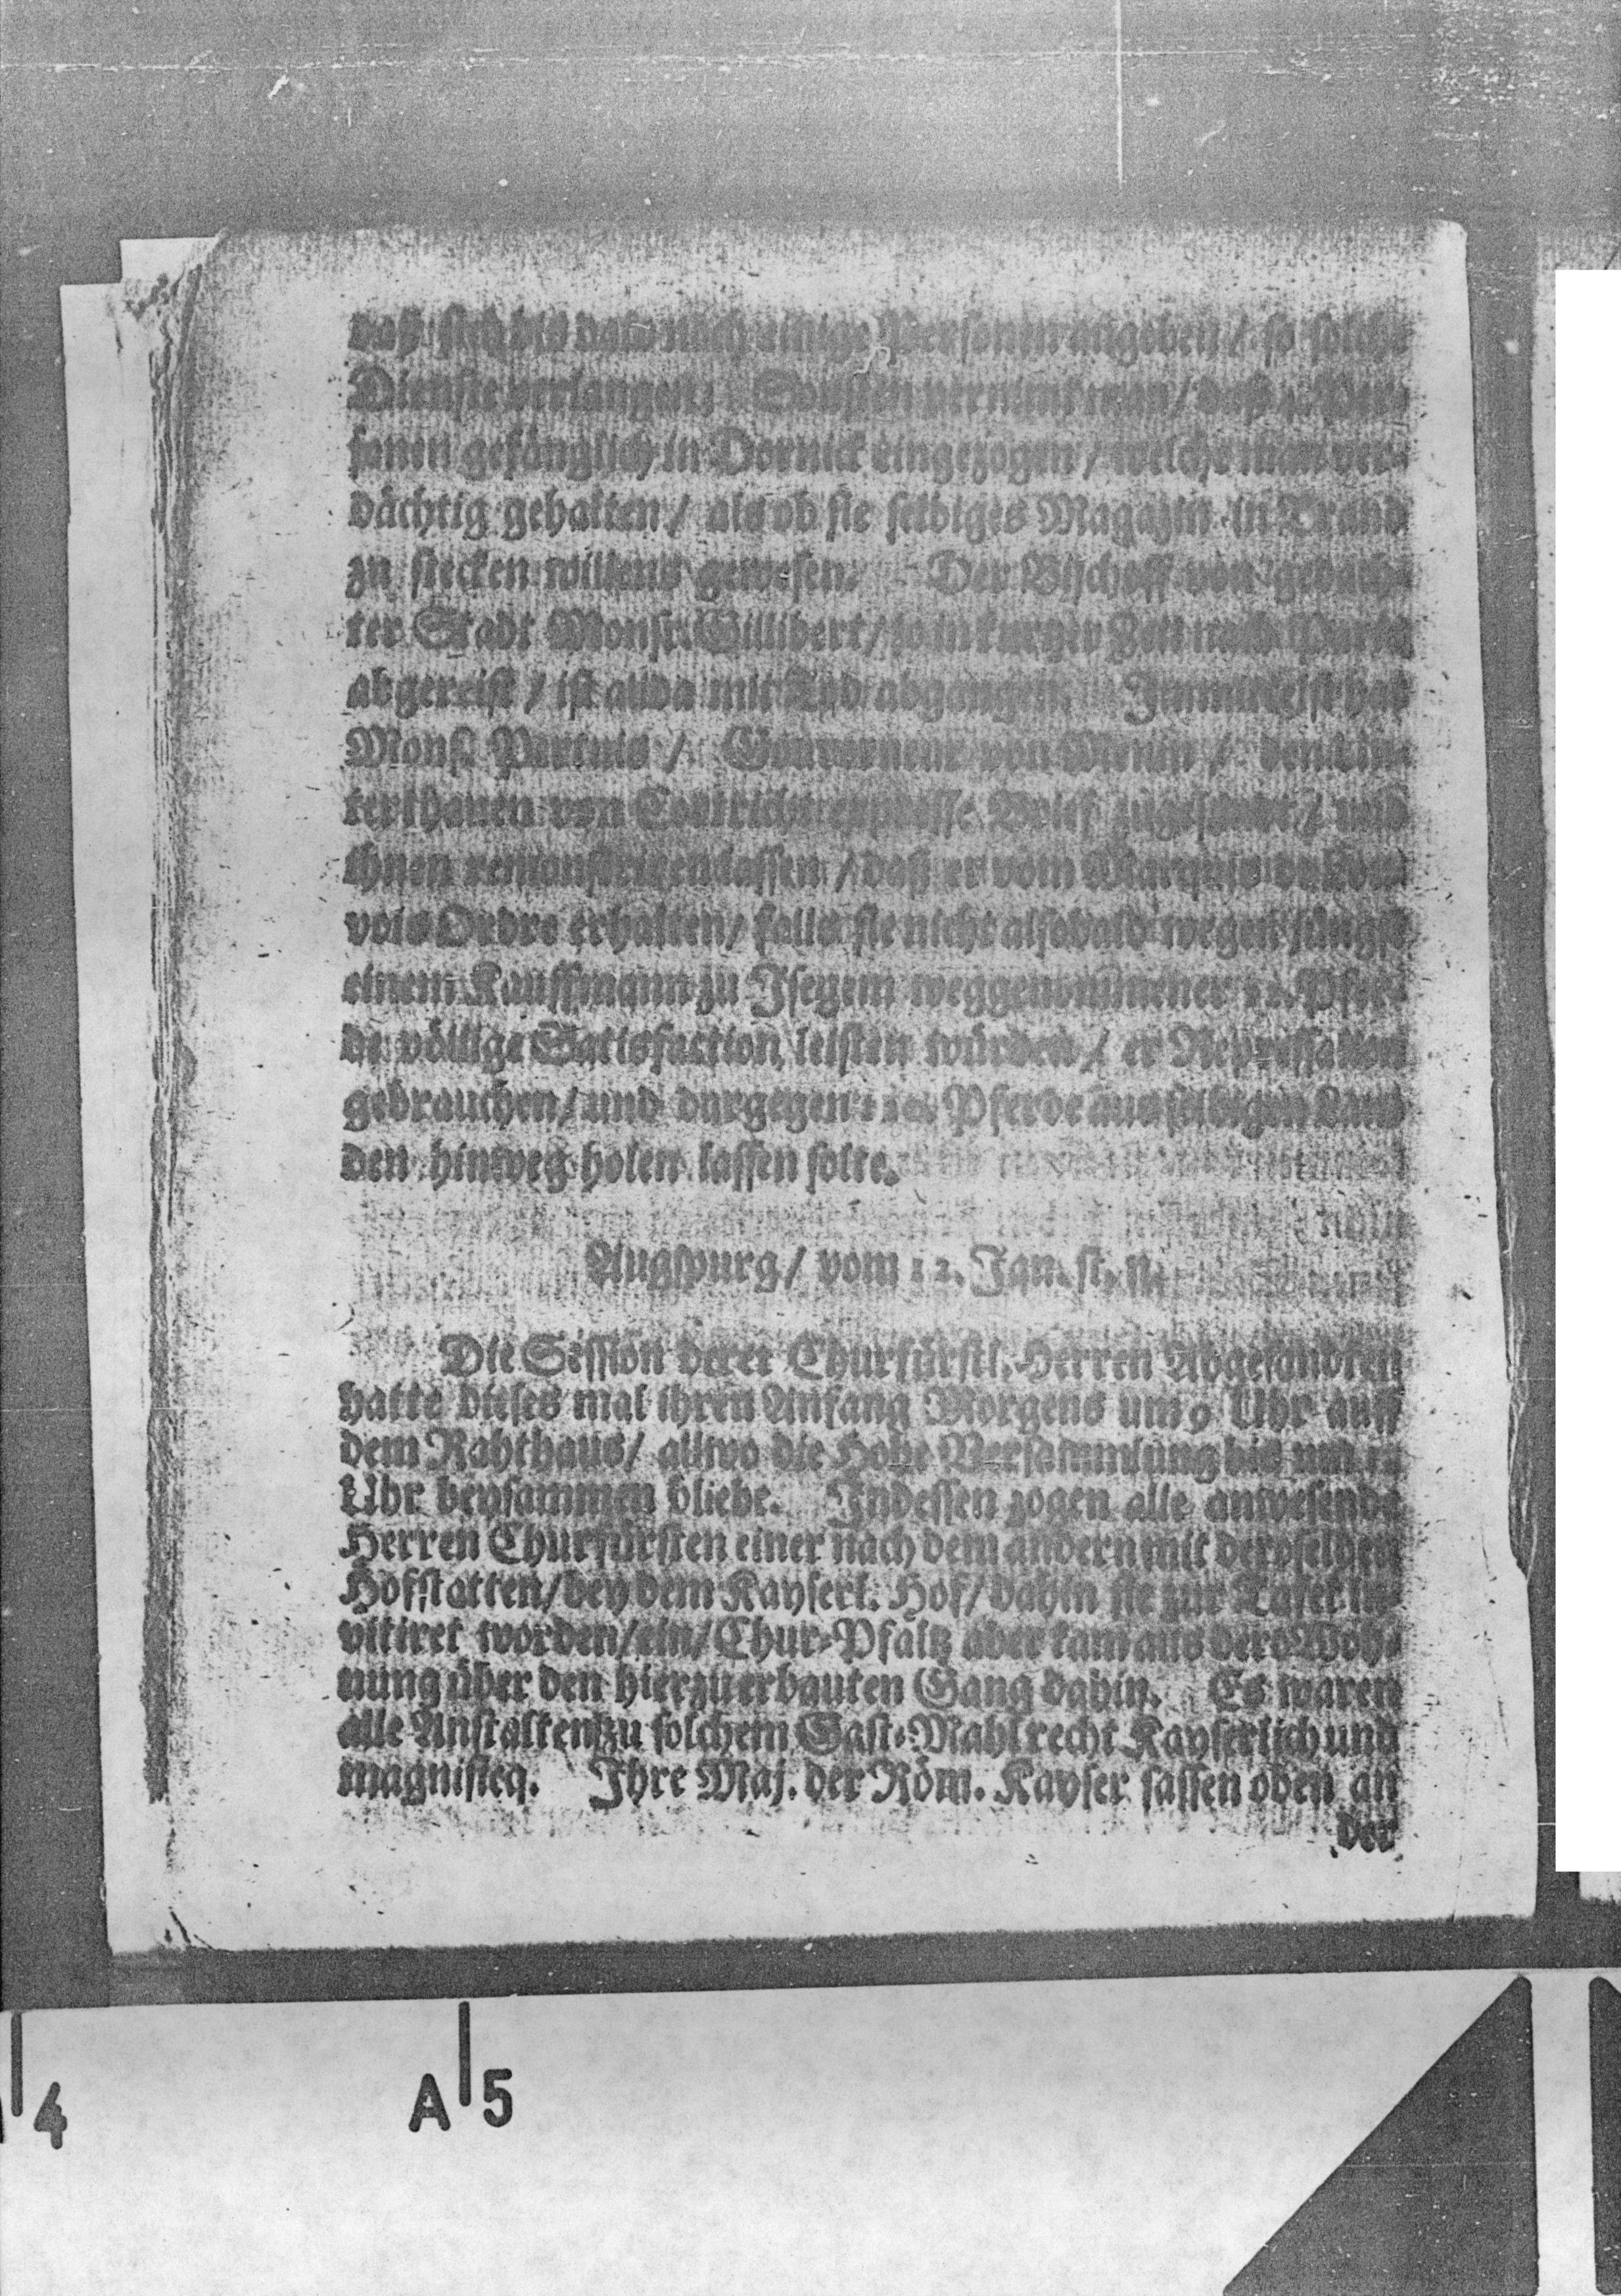 daß sich bis dato noch einige Personen angeben / so solche
Dienste verlangen; Sonsten vernimt man / daß Per-
sonen gefänglich in Dornick eingezogen / welche man ver-
dächtig gehalten / als ob sie selbiges Magazin in Brand
zu stecken willens gewesen. Der Bischoff von gedach-
ter Stadt Monsr. Gillibert / so in kurtzer Zeit nach Paris
abgereist / ist allda mit Tod abgangen. Immittelst hat
Mons. Pertuis / Gouverneur von Menin / den Un-
terthanen von Cortricht expresse Bohts zugesandt / und
ihnen remonstriren lassen / daß er vom Marquis de Lou-
vois Ordre erhalten / falls sie nicht alsobald wegen jüngst
einem Kauffmann zu Isegem weggenommener 12. Pfer-
de völlige Satisfaction leisten würden / er Repressalien
gebrauchen / und dargegen 120. Pferde aus selbigen Lan-
den hinweg holen lassen solte.
Augspurg / vom 12. Jan. st. n.
Die Session derer Churfürstl. Herren Abgesandten
hatte dieses mal ihren Anfang Morgens um 9 Uhr auff
dem Rahthaus / allwo die Hohe Versammlung bis um 12
Uhr beysammen bliebe. Indessen zogen alle anwesende
Herren Churfürsten einer nach dem andern mit deroselben
Hofstatten / bey dem Kayserl. Hof / dahin sie zur Tafel in-
vitiret worden / ein / Chur-Pfaltz aber kam aus dero Woh-
nung über den hierzu erbauten Gang dahin. Es waren
alle Anstalten zu solchem Gast-Mahl recht Kayserlich und
magnifieq. Ihre Maj. der Röm. Kayser sassen oben an
der
4
A 5